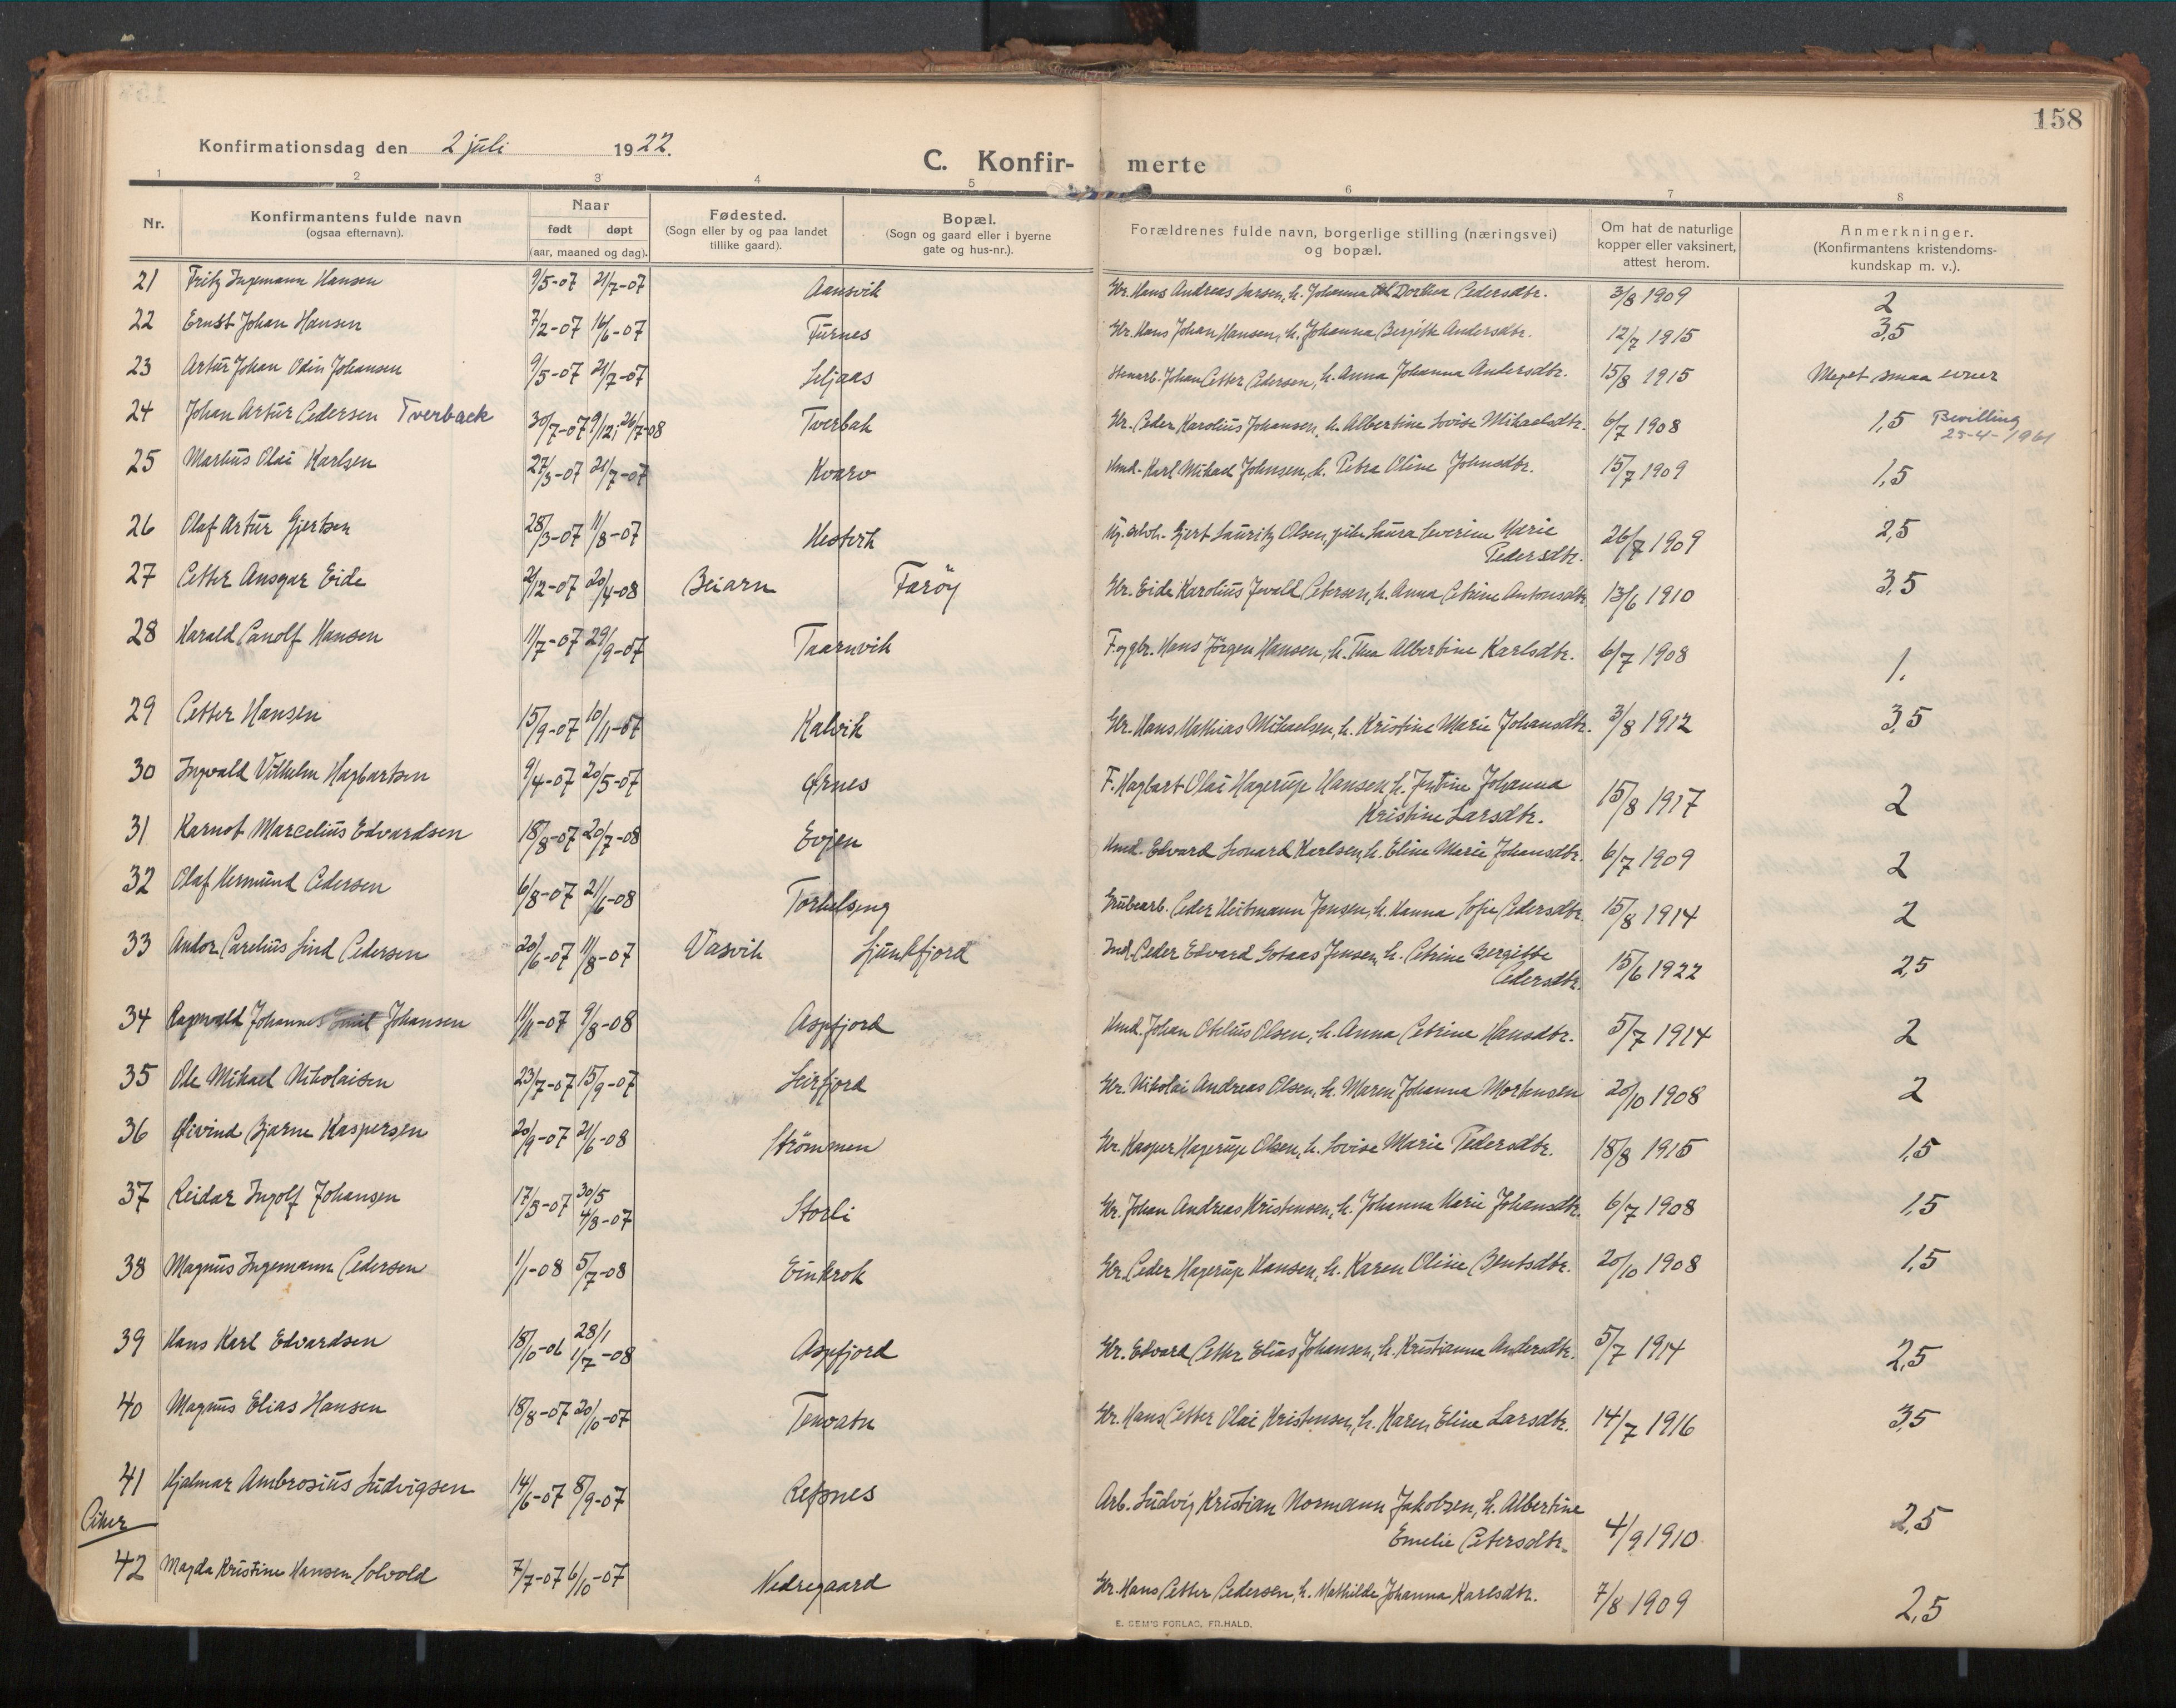 158
Konfirmationsdag den 2 juli 1922.
C. Konfir- merte
1 2 3 4 5 6 7 8
Nr. Konfirmantens fulde navn (ogsaa efternavn). Naar født døpt (aar, maaned og dag). Fødested. (Sogn eller by og paa landet tillike gaard). Bopæl. (Sogn og gaard eller i byerne gate og hus-nr.). Forældrenes fulde navn, borgerlige stilling (næringsvei) og bopæl. Om hat de naturlige kopper eller vaksinert, attest herom. Anmerkninger. (Konfirmantens kristendoms-kundskap m. v.).
21 Fritz Ingemann Hansen 9/5-07 21/7-07 Aansvik Gbr. Hans Andreas Larsen, h. Johanna Dorthea Pedersdtr. 3/8 1909 2
22 Ernst Johan Hansen 7/2-07 16/6-07 Furnes Gbr. Hans Johan Hansen, h. Johanna Bergitte Andersdtr. 12/7 1915 3,5
23 Artur Johan Odin Johansen 9/5-07 21/7-07 Seljaas Stenarb. Johan Petter Pedersen, h. Anna Johanna Andersdtr. 15/8 1915 Meget smaa evner
24 Johan Artur Pedersen Tverback 30/7-07 9/12, 26/7-08 Tverbak Gbr. Peder Karolius Johansen, h. Albertine Lovise Mikaelsdtr. 6/7 1908 1,5 Bevilling
25-4-1961
25 Markus Olai Karlsen 27/3-07 21/7-07 Kvarv Hmd. Karl Mikael Johnsen, h. Petra Oline Johnsdtr. 15/7 1909 1,5
26 Olaf Artur Gjertsen 28/3-07 11/8-07 Hestvik Gjert Lauritz Olsen, pike Laura Severine Marie
Pedersdtr. 26/7 1909 2,5
27 Petter Ansgar Eide 2/12-07 20/4-08 Beiarn Farøy Gbr. Eide Karolius Evald Petersen, h. Anna Petrine Antonsdtr. 13/6 1910 3,5
28 Harald Panolf Hansen 11/7-07 29/9-07 Taarnvik F. og gbr. Hans Jørgen Hansen, h. Thea Albertine Karlsdtr. 6/7 1908 1.
29 Petter Hansen 15/9-07 10/11-07 Kalvik Gbr. Hans Mathias Mikaelsen, h. Kristine Marie Johansdtr. 3/8 1912 3,5
30 Ingvald Vilhelm Hagbartsen 9/4-07 20/5-07 Ørnes F. Hagbart Olai Hagerup Hansen, h. Jentine Johanna
Kristine Larsdtr. 15/8 1917 2
31 Karnot Marcelius Edvardsen 18/8-07 20/7-08 Evjen Hmd. Edvard Leonard Karlsen, h. Eline Marie Johansdtr. 6/7 1909 2
32 Olaf Hermund Pedersen 6/8-07 21/6-08 Torkelseng Grubearb. Peder Heitmann Jensen, h. Hanna Sofie Pedersdtr. 15/8 1914 2
33 Andor Parelius Lind Pedersen 20/6-07 11/8-07 Vasvik Ljunkfjord Ind. Peder Edvard Gotaas Jensen, h. Petrine Bergitte
Pedersdtr. 15/6 1922 2,5
34 Ragnvald Johannes Emil Johansen 11/11-07 9/8-08 Aspfjord Hmd. Johan Otelius Olsen, h. Anna Petrine Hansdtr. 5/7 1914 2
35 Ole Mikael Nikolaisen 23/7-07 15/9-07 Leirfjord Gbr. Nikolai Andreas Olsen, h. Maren Johanna Mortensen 20/10 1908 2
36 Øivind Bjarne Kaspersen 20/9-07 21/6-08 Strömmen Gbr. Kasper Hagerup Olsen, h. Lovise Marie Pedersdtr. 18/8 1915 1,5
37 Reidar Ingolf Johansen 17/3-07 30/5
4/8-07 Storli Gbr. Johan Andreas Kristensen, h. Johanna Marie Johansdtr. 6/7 1908 1,5
38 Magnus Ingemann Pedersen 1/1-08 5/7-08 Einkrok Gbr. Peder Hagerup Hansen, h. Karen Oline Bentsdtr. 20/10 1908 1,5
39 Hans Karl Edvardsen 18/10-06 28/1
1/7-08 Aspfjord Gbr. Edvard Petter Elias Johansen, h. Kristianna Andersdtr. 5/7 1914 2,5
40 Magnus Elias Hansen 18/8-07 20/10-07 Tenvatn Gbr. Hans Petter Olai Kristensen, h. Karen Eline Larsdtr. 14/7 1916 3,5
41 Hjalmar Ambrosius Ludvigsen 14/6-07 8/9-07 Refsnes Arb. Ludvig Kristian Normann Jakobsen, h. Albertine
Emelie Petersdtr. 4/9 1910 2,5
Piker
42 Magda Kristine Hansen Solvold 7/7-07 6/10-07 Nedregaard Gbr. Hans Petter Pedersen, h. Mathilde Johanna Karlsdtr. 7/8 1909 2,5
E. SEM'S FORLAG, FR.HALD.